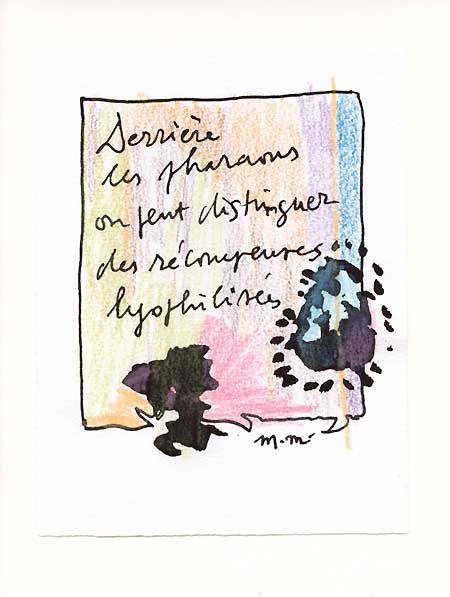 Derrière
les pharaons
on peut distinguer
des récompenses
lyophilisées
m.m.